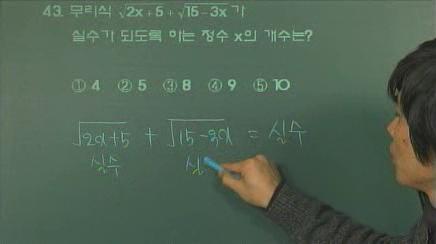 43. 무리식 √2x+5+√15-3x 가
실수가 되도록 하는 정수 x의 개수는?
① 4 ② 5 ③ 8 ④ 9 ⑤ 10
√2x+5 + √15-3x = 실수
실수 실